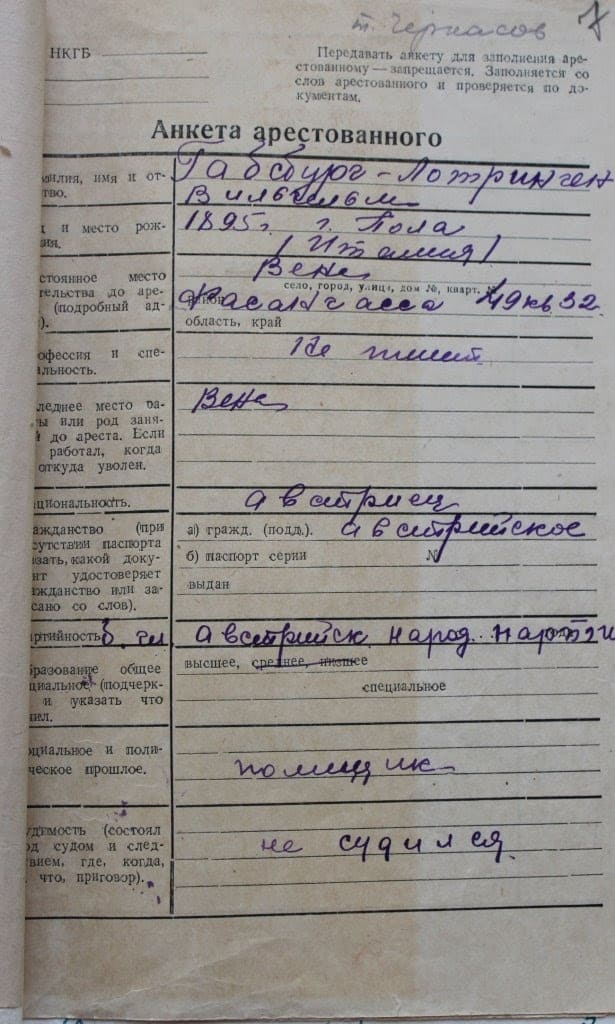 т. Черкасов 7
НКГБ
Передавать анкету для заполнения аре-
стованному — запрещается. Заполняется со
слов арестованного и проверяется по до-
кументам.
Анкета арестованного
милия, имя и от-
тво.
Габсбург - Лотринген
Вильгельм
и место рож-
ия.
1895г. г. Пола
(Италия)
стоянное место
тельства до аре-
(подробный ад-
).
Вена
село, город, улица, дом №, кварт. №
район
гасса №49 кв. 32.
область, край
офессия и спе-
альность.
Не имеет
следнее место ра-
ты или род заня-
до ареста. Если
работал, когда
откуда уволен.
Вена
циональность.
австриец
ажданство (при
сутствии паспорта
азать, какой доку-
нт удостоверяет
ажданство или за-
сано со слов).
а) гражд. (подд.). австрийское
б) паспорт серии №
выдан
артийность б. чл. австрийск. народ. партии
бразование общее
циальное (подчерк-
и указать что
чил.
высшее, среднее, низшее
специальное
оциальное и поли-
ческое прошлое.
помещик
удимость (состоял
од судом и след-
твием, где, когда,
что, приговор).
не судился